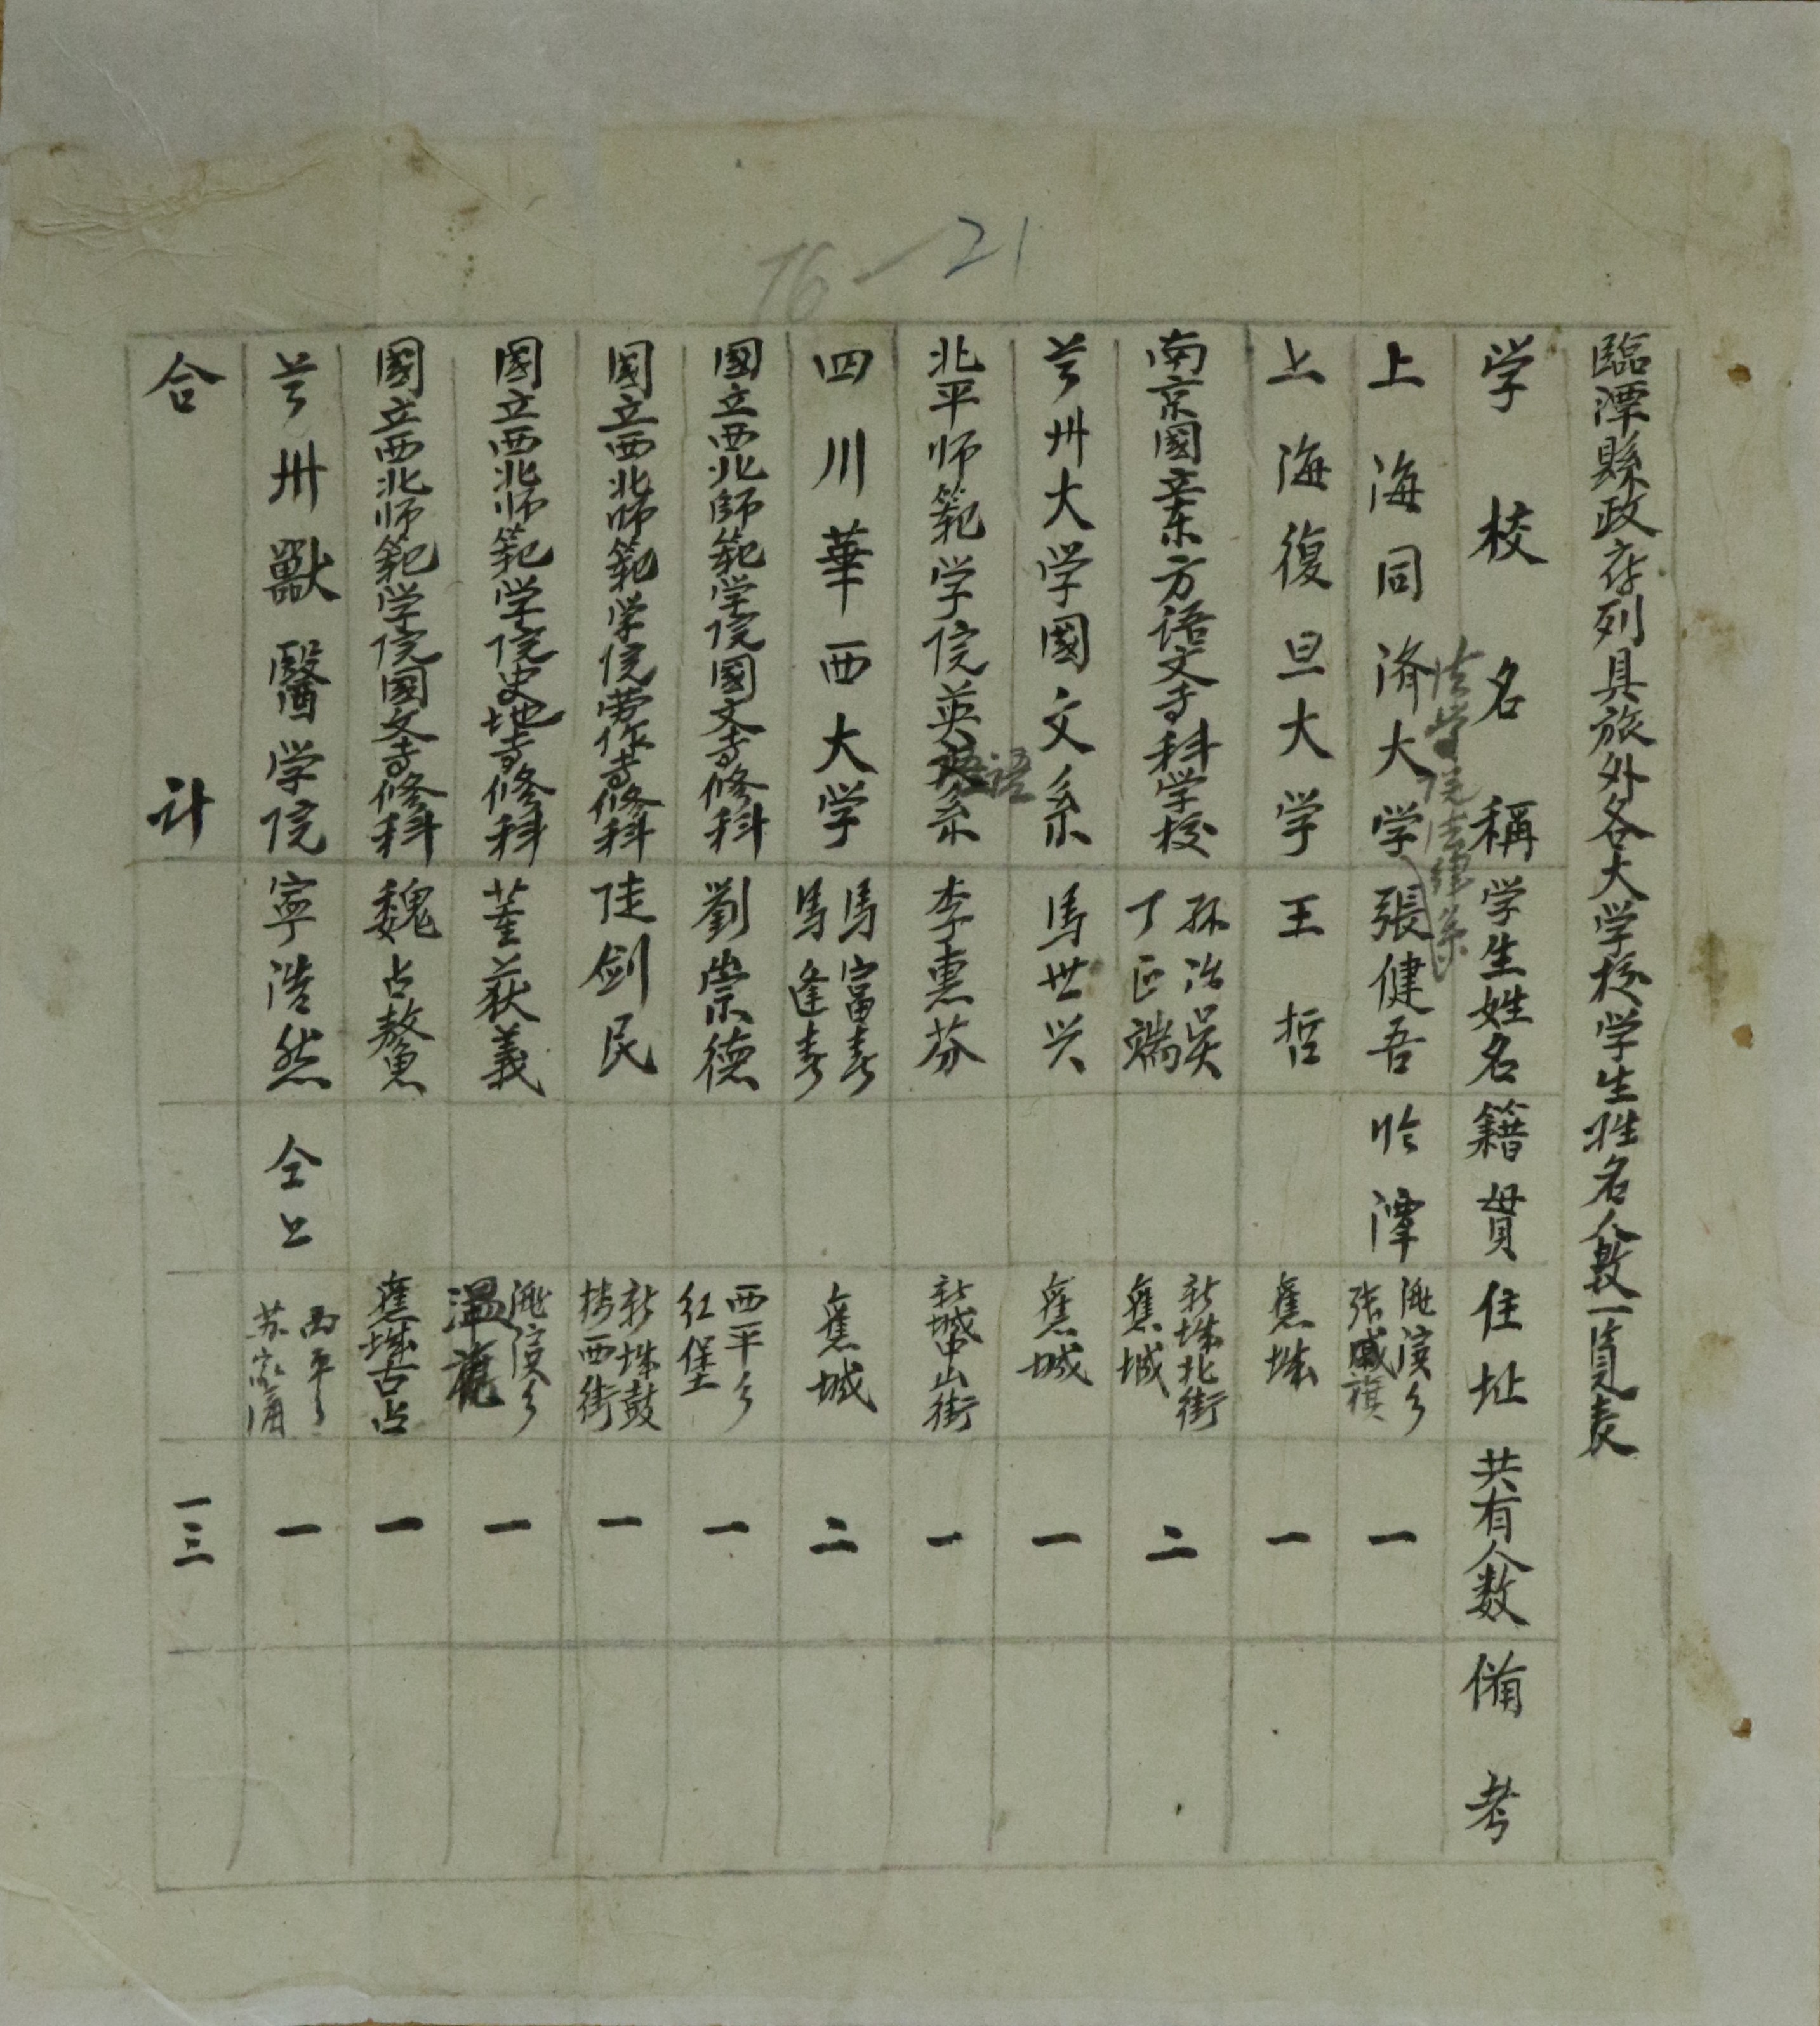 76—21
臨潭縣政府列具旅外各大学校学生姓名人数一覽表
学校名稱 学生姓名 籍貫 住址 共有人数 備考
法学院法律系
上海同済大学 張健吾 临潭 洮濱乡 张旗 一
上海復旦大学 王哲 舊城 一
南京國立东方語文专科学校 孙治吴 丁正端 新城北街 舊城 二
兰州大学國文系 馬世兴 舊城 一
語
北平师範学院英系 李惠芬 新城中山街 一
四川華西大学 馬富春 馬逢春 舊城 二
國立西北師範学院國文专修科 劉崇德 西平乡 红堡 一
國立西北师範学院劳作专修科 陆剑民 新城鼓楼西街 一
國立西北师範学院史地专修科 董荻義 洮濱乡 一
國立西北师範学院國文专修科 魏占鰲 舊城古占 一
兰州獸醫学院 寧浩然 仝上 西平乡 苏家 一
合计 一三